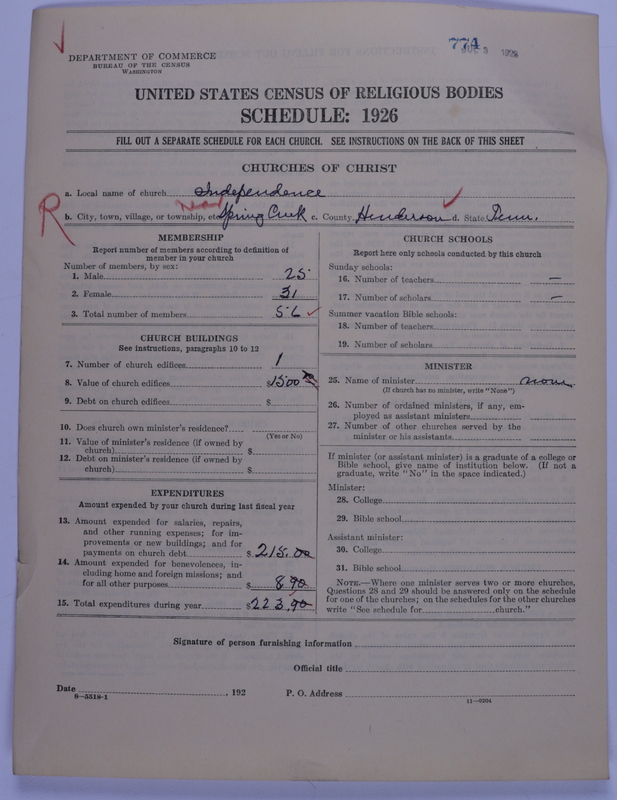 774
DEPARTMENT OF COMMERCE
BUREAU OF THE CENSUS
WASHINGTON
3 1928
UNITED STATES CENSUS OF RELIGIOUS BODIES
SCHEDULE: 1926
FILL OUT A SEPARATE SCHEDULE FOR EACH CHURCH. SEE INSTRUCTIONS ON THE BACK OF THIS SHEET
CHURCHES OF CHRIST
R
a. Local name of church Independence
Near
b. City, town, village, or township, etc. Spring Creek c. County Henderson d. State Tenn.
MEMBERSHIP
Report number of members according to definition of
member in your church
Number of members, by sex:
1. Male 25
2. Female 31
3. Total number of members 56
CHURCH BUILDINGS
See instructions, paragraphs 10 to 12
7. Number of church edifices 1
8. Value of church edifices $1500
9. Debt on church edifices $
10. Does church own minister's residence?
(Yes or No)
11. Value of minister's residence (if owned by
church) $
12. Debt on minister's residence (if owned by
church) $
EXPENDITURES
Amount expended by your church during last fiscal year
13. Amount expended for salaries, repairs,
and other running expenses; for im-
provements or new buildings; and for
payments on church debt $215.00
14. Amount expended for benevolences, in-
cluding home and foreign missions; and
for all other purposes $8.90
15. Total expenditures during year $223.90
CHURCH SCHOOLS
Report here only schools conducted by this church
Sunday schools:
16. Number of teachers —
17. Number of scholars —
Summer vacation Bible schools:
18. Number of teachers
19. Number of scholars
MINISTER
25. Name of minister none
(If church has no minister, write "None")
26. Number of ordained ministers, if any, em-
ployed as assistant ministers
27. Number of other churches served by the
minister or his assistants
If minister (or assistant minister) is a graduate of a college or
Bible school, give name of institution below. (If not a
graduate, write "No" in the space indicated.)
Minister:
28. College
29. Bible school
Assistant minister:
30. College
31. Bible school
NOTE.—Where one minister serves two or more churches,
Questions 28 and 29 should be answered only on the schedule
for one of the churches; on the schedules for the other churches
write "See schedule for church."
Signature of person furnishing information
Official title
Date , 192 P. O. Address
8—5518-1 11—9204